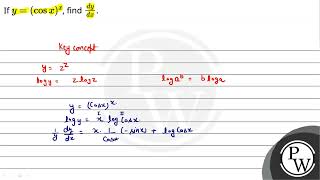 If y = (cos x)^x, find dy/dx.
Key concept
y = z^z
log y = z log z
log a^b = b log a
y = (cos x)^x
I II
log y = x log cos x
1/y dy/dx = x · 1/cos x (-sin x) + log cos x
PW